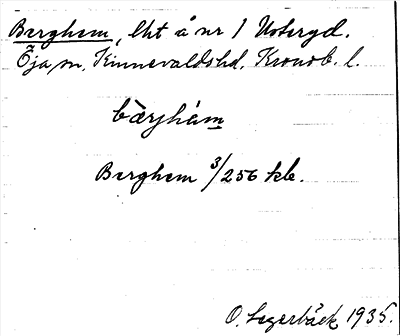 Berghem, lht å nr 1 Notergd.
Öja sn, Kinnevaldshd. Kronob. l.
bærjhám
Berghem 3/256 kle.
O. Segerbäck 1935.